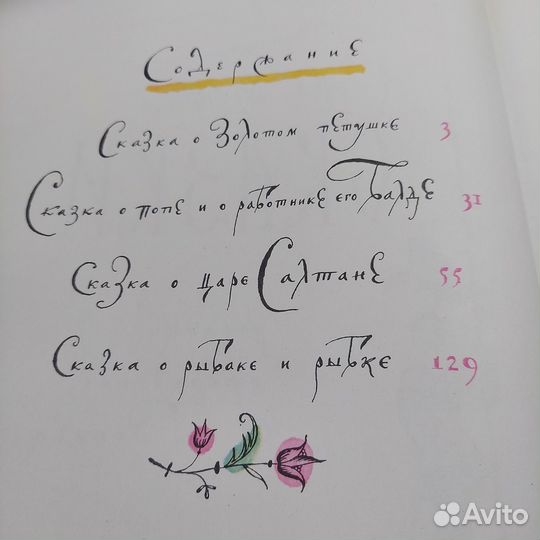 Содержание
Сказка о Золотом петушке 3
Сказка о попе и о работнике его Балде 31
Сказка о царе Салтане 55
Сказка о рыбаке и рыбке 129
Avito